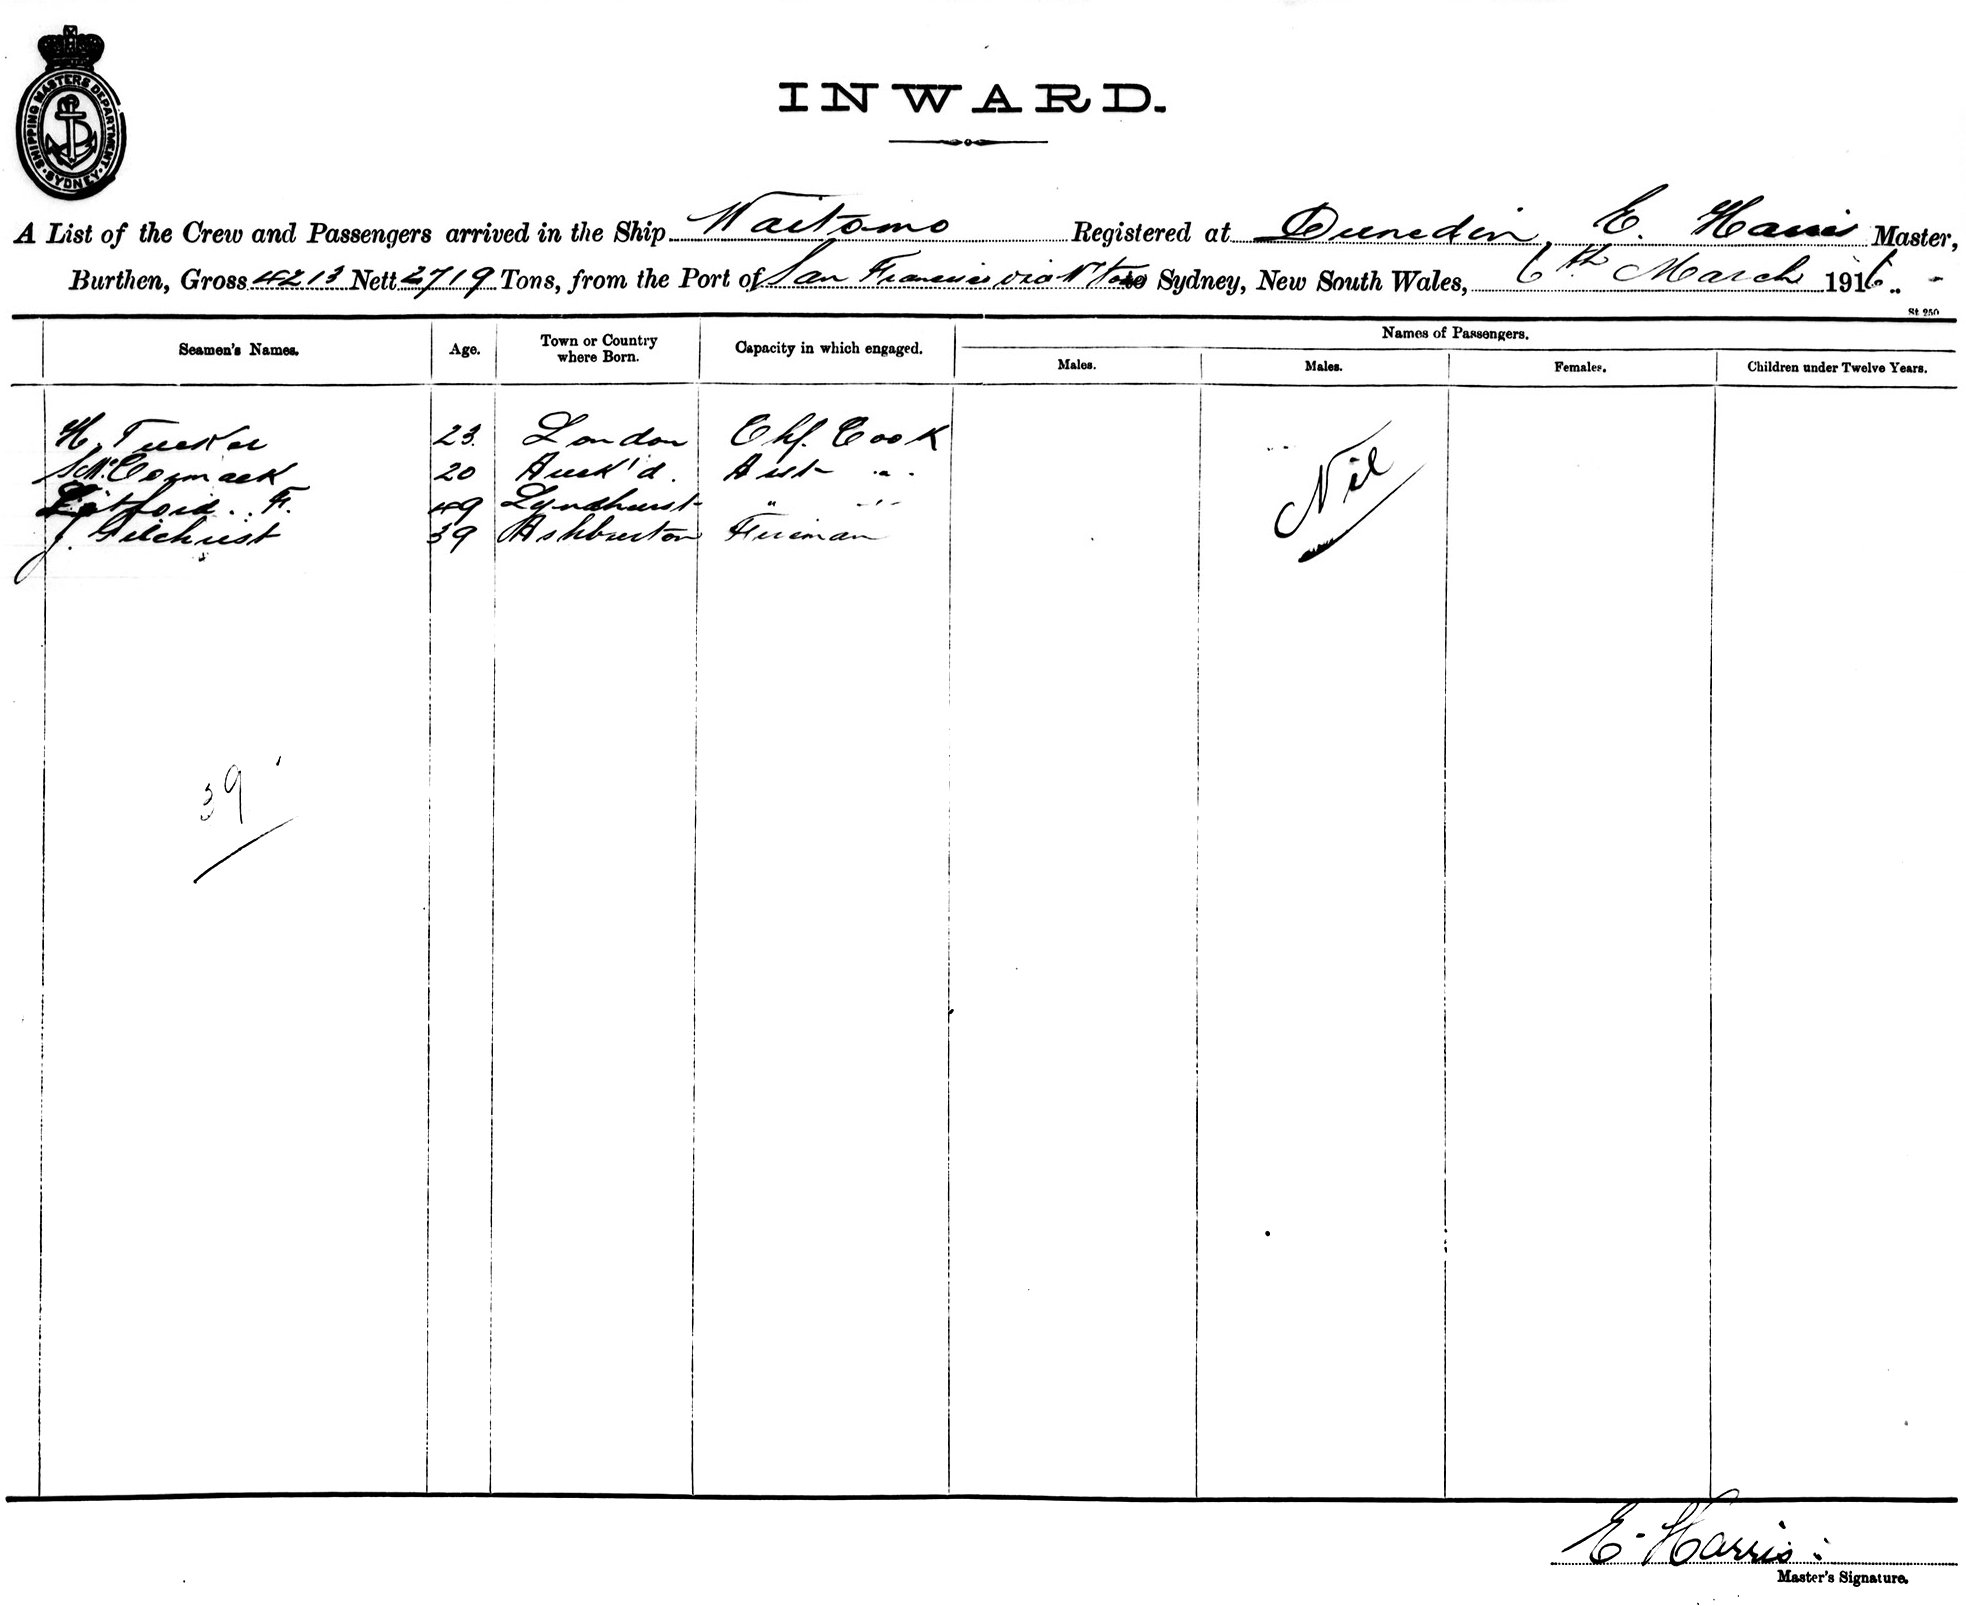 SHIPPING MASTERS DEPARTMENT · SYDNEY ·
INWARD.
A List of the Crew and Passengers arrived in the Ship Waitomo Registered at Dunedin, E. Harris Master,
Burthen, Gross 4213 Nett 2719 Tons, from the Port of San Francisco via Sydney, New South Wales, 6th March 1916
St 250
Seamen's Names. Age. Town or Country where Born. Capacity in which engaged. Names of Passengers.
Males. Males. Females. Children under Twelve Years.
H. Tucker 23 London Chf. Cook
S. McCormack 20 Auck'd. Asst "
F. 49 Lyndhurst " "
J. Gilchrist 39 Ashburton Fireman
Nil
39
E. Harris
Master's Signature.